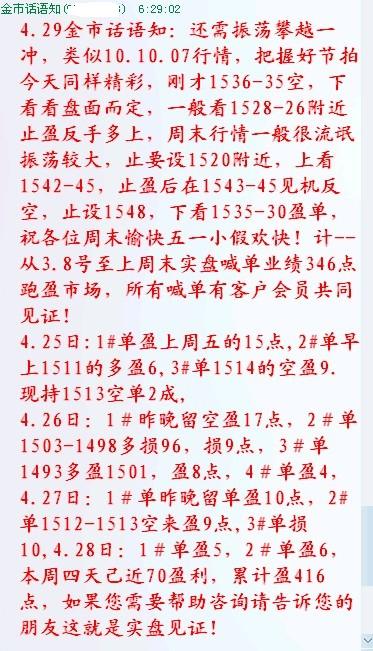 金市话语知( 6:29:02
4.29金市话语知：还需振荡攀越一
冲，类似10.10.07行情，把握好节拍
今天同样精彩，刚才1536-35空，下
看看盘面而定，一般看1528-26附近
止盈反手多上，周末行情一般很流氓
振荡较大，止要设1520附近，上看
1542-45，止盈后在1543-45见机反
空，止设1548，下看1535-30盈单，
祝各位周末愉快五一小假欢快！计--
从3.8号至上周末实盘喊单业绩346点
跑盈市场，所有喊单有客户会员共同
见证！
4.25日：1#单盈上周五的15点,2#单早
上1511的多盈6,3#单1514的空盈9.
现持1513空单2成,
4.26日：1＃昨晚留空盈17点，2＃单
1503-1498多损96，损9点，3＃单
1493多盈1501，盈8点，4＃单盈4,
4.27日：1＃单昨晚留单盈10点，2#
单1512-1513空来盈9点,3#单损
10,4.28日：1＃单盈5，2＃单盈6,
本周四天己近70盈利，累计盈416
点，如果您需要帮助咨询请告诉您的
朋友这就是实盘见证！